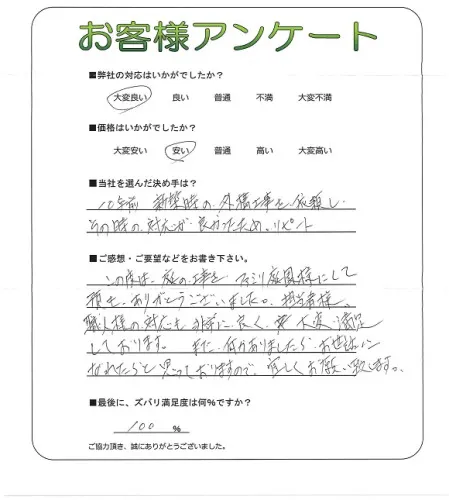 お客様アンケート
■弊社の対応はいかがでしたか?
大変良い 良い 普通 不満 大変不満
■価格はいかがでしたか?
大変安い 安い 普通 高い 大変高い
■当社を選んだ決め手は?
10年前 新築時の外構工事を依頼し
その時の対応が良かったため、リピート
■ご感想・ご要望などをお書き下さい。
この度は、庭の工事を ファミリ庭園様にして
頂き、ありがとうございました。担当者様、
職人様の対応も非常に良く、大変満足
しております。 また、何かありましたら、お世話に
なれたらと思っておりますので、宜しくお願い致します。
■最後に、ズバリ満足度は何%ですか?
100 %
ご協力頂き、誠にありがとうございました。